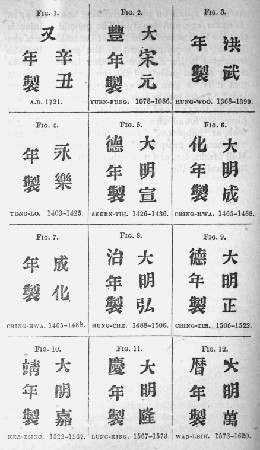 FIG. 1.
又
辛丑
年製
A.D. 1721.
FIG. 2.
大宋元
豐年製
YUEN-FUNG. 1078-1086.
FIG. 3.
洪武
年製
HUNG-WOO. 1368-1399.
FIG. 4.
永樂
年製
YONG-LO. 1403-1425.
FIG. 5.
大明宣
德年製
SEUEN-TIH. 1426-1436.
FIG. 6.
大明成
化年製
CHING-HWA. 1465-1488.
FIG. 7.
成化
年製
CHING-HWA. 1465-1488.
FIG. 8.
大明弘
治年製
HUNG-CHE. 1488-1506.
FIG. 9.
大明正
德年製
CHING-TIH. 1506-1522.
FIG. 10.
大明嘉
靖年製
KEA-TSING. 1522-1567.
FIG. 11.
大明隆
慶年製
LUNG-KING. 1567-1573.
FIG. 12.
大明萬
曆年製
WAN-LEIH. 1573-1620.